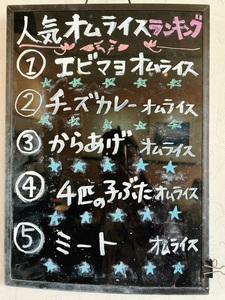 人気オムライスランキング
① エビマヨ オムライス
② チーズカレー オムライス
③ からあげ オムライス
④ 4匹の子ぶた オムライス
⑤ ミート オムライス